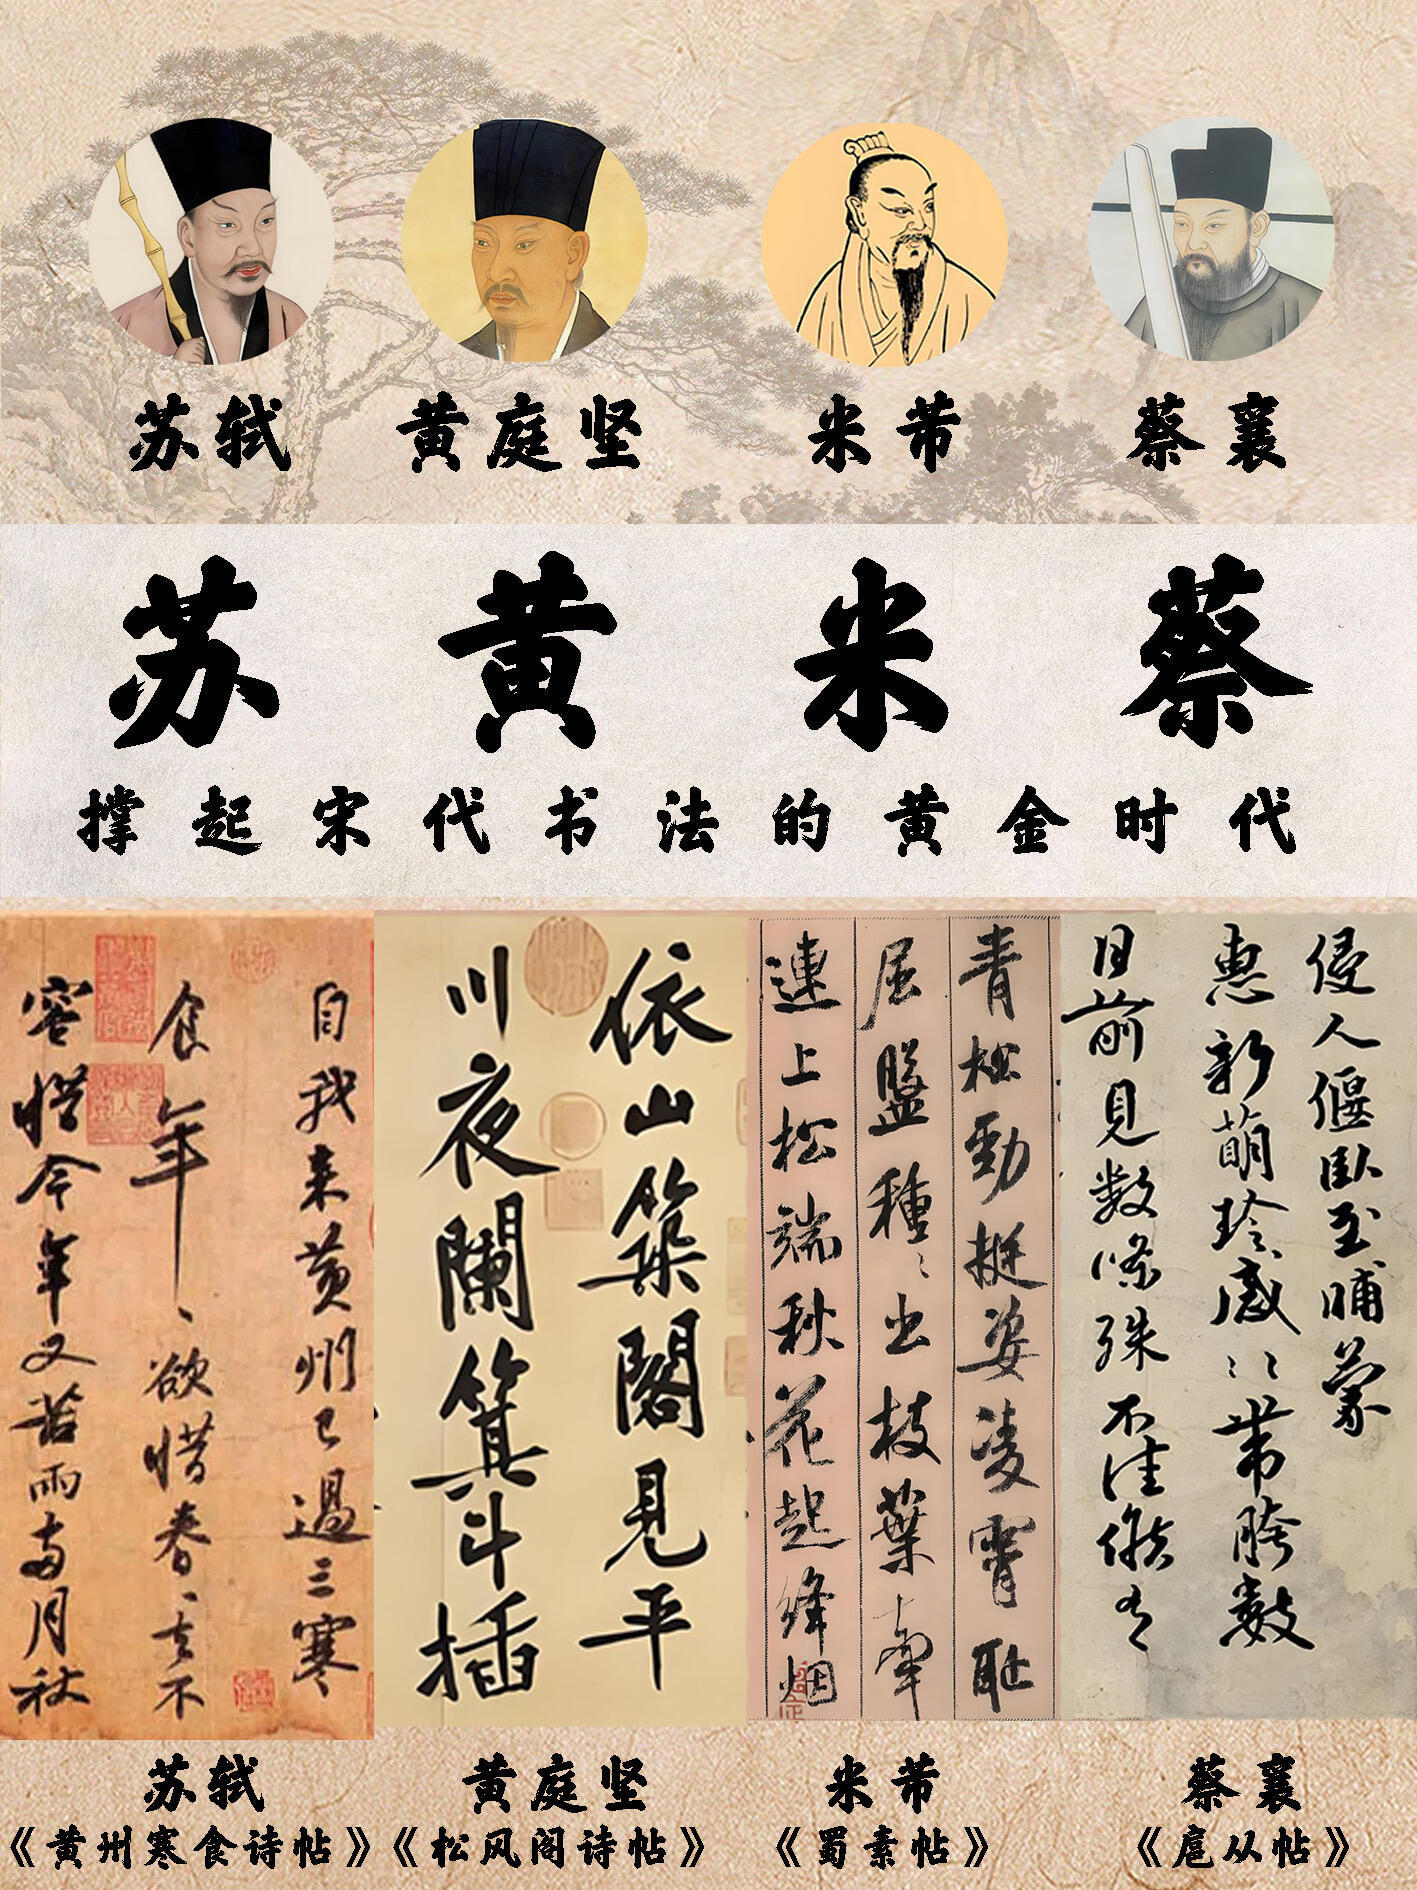 苏轼
黄庭坚
米芾
蔡襄
苏黄米蔡
撑起宋代书法的黄金时代
自我来黄州已過三寒
食年〻欲惜春〻去不
容惜今年又苦雨两月秋
依山築閣見平
川夜闌箕斗插
青松勁挺姿凌霄恥
屈盤種〻出枝葉牽
連上松端秋花起絳烟
侵人偃臥至晡蒙
惠新萌珍感〻帶胯數
日前見数條殊不佳候有
苏轼
《黄州寒食诗帖》
黄庭坚
《松风阁诗帖》
米芾
《蜀素帖》
蔡襄
《扈从帖》